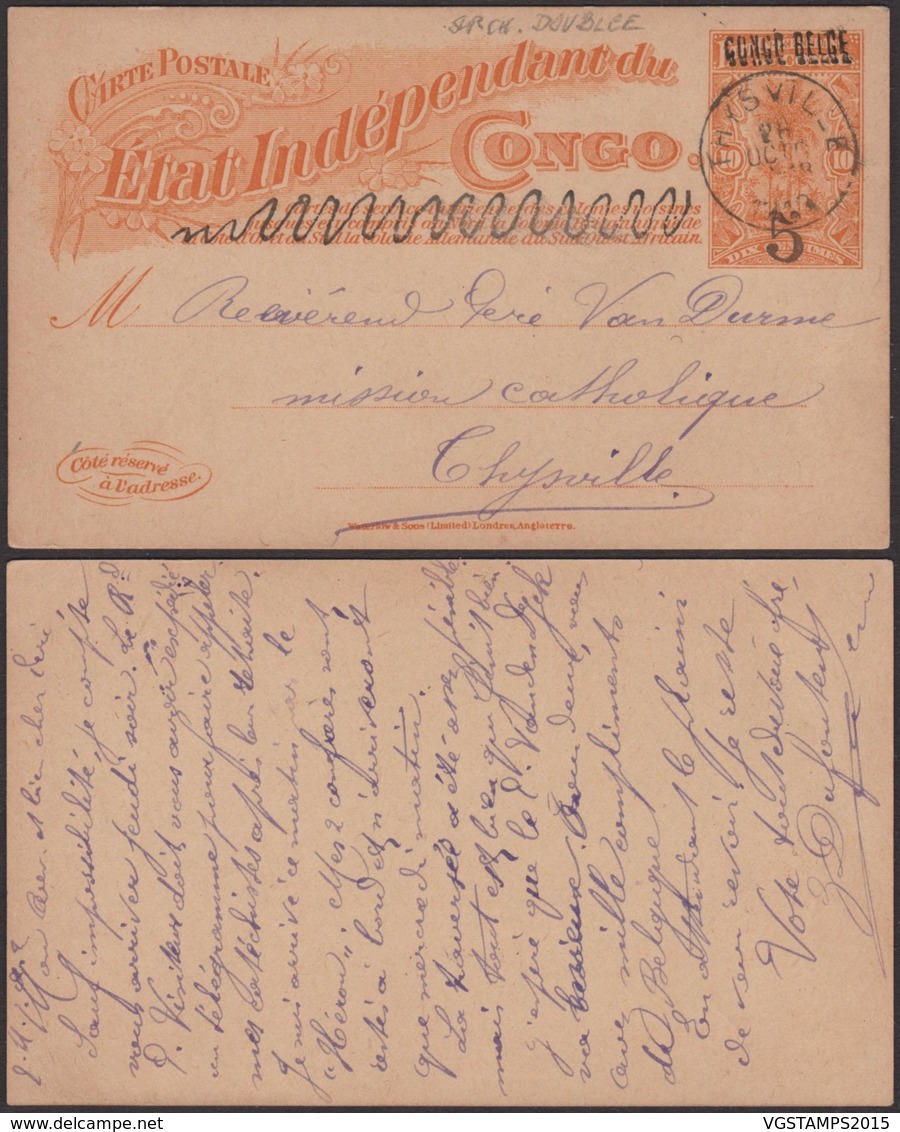 SRCH. DOUBLEE
CARTE POSTALE
État Indépendant du
CONGO.
CONGO BELGE
THYSVILLE
10 10
DIX CENTIMES
5
M Revérend Père Van Durme
mission catholique
Thysville
Côté réservé
à l'adresse.
Waterlow & Sons (Limited) Londres, Angleterre.
Mon Rev. et bien cher Père
Sauf impossibilité je compte
vous arriver jeudi soir. Le Rd
P. Visiteur doit vous avoir expédié
un télégramme pour faire appeler
mes catéchistes après leur retraite.
Je suis arrivé ce matin par le
"Héron". Mes 2 confrères sont
restés à bord et n'arriveront
que mercredi matin.
La traversée a été assez pénible
mais tout est bien qui finit bien.
J'espère que le P. Vandendyck
va
avec mille compliments
de Belgique
En attendant le plaisir
de vous revoir je reste
Votre tout dévoué frè-
re en